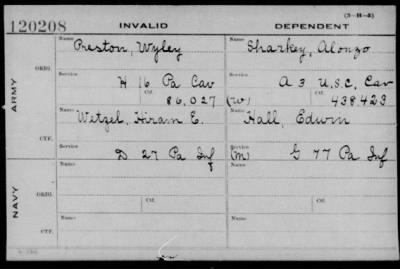 (3-H-5)
120208 INVALID DEPENDENT
Name Preston, Wyley Name Sharkey, Alonzo
ARMY
ORIG.
Service H 16 Pa Cav Service A 3 U.S.C. Cav
Ctf. 86,027 (W) Ctf. 438.423
Name Wetzel, Hiram E. Name Hall, Edwin
CTF.
Service D 27 Pa Inf Service (M) G 77 Pa Inf
NAVY
Name Name
ORIG.
Service Ctf. Service Ctf.
Name Name
CTF.
Service Service